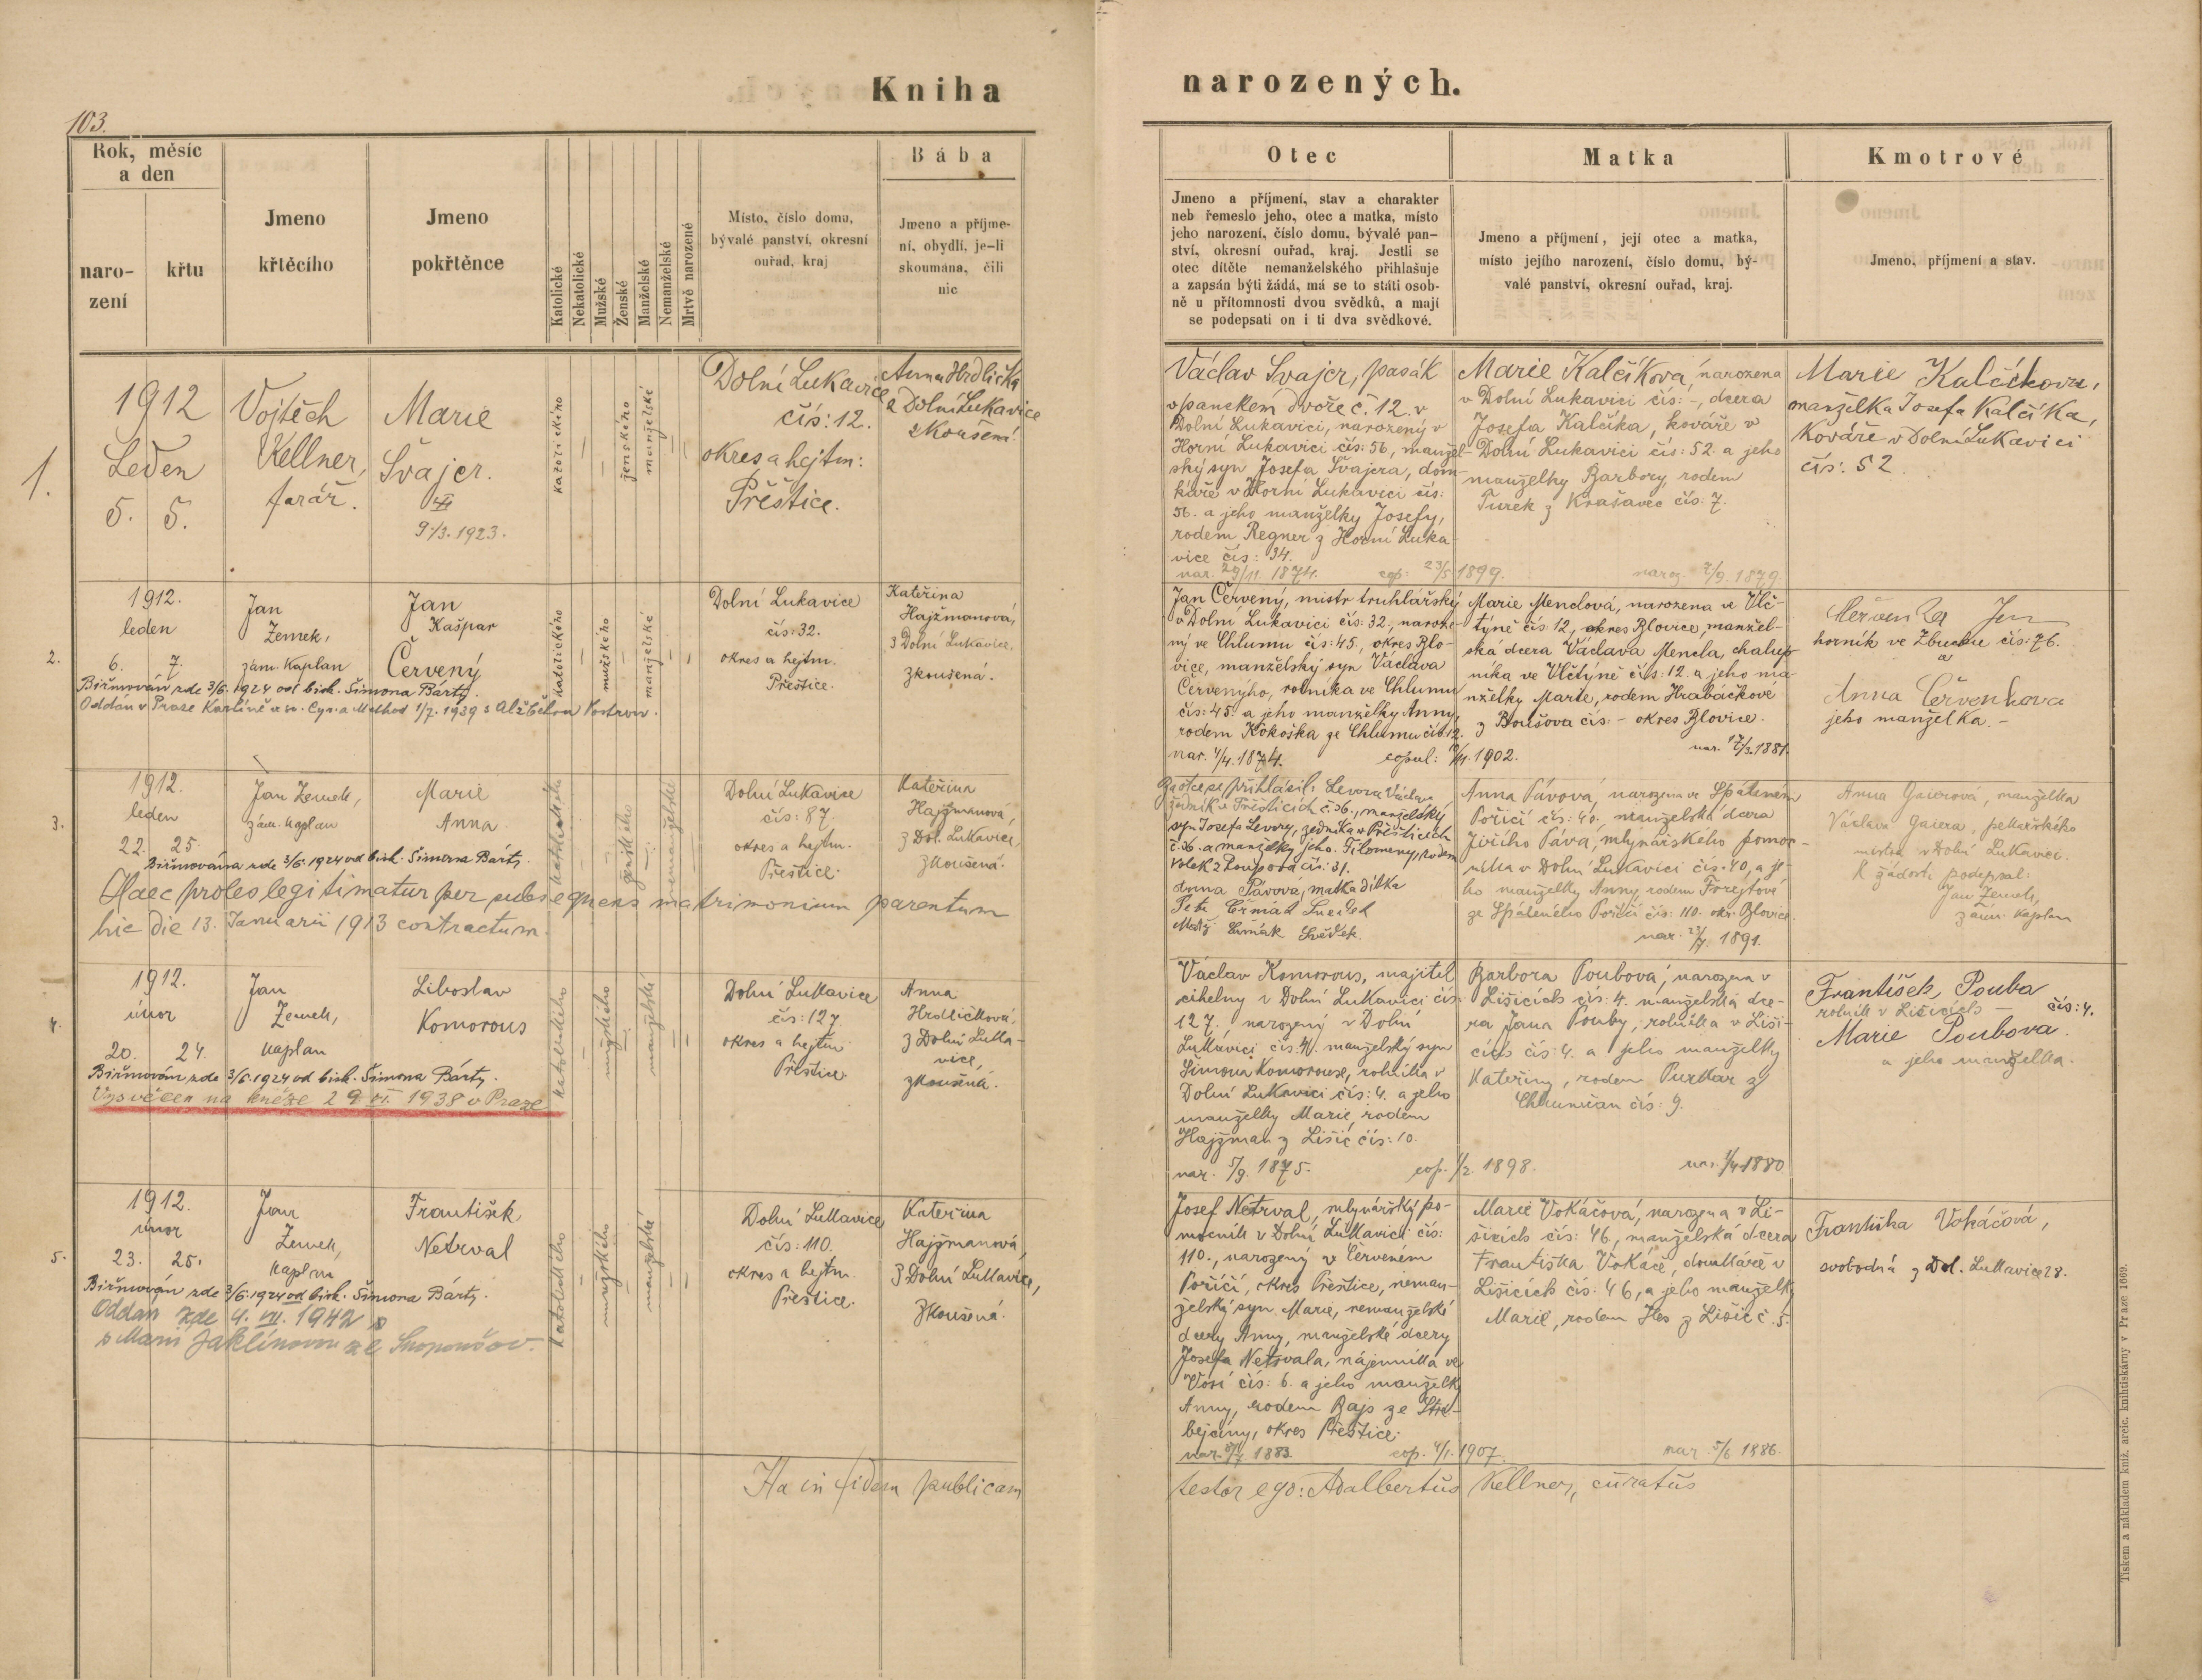 Kniha narozených.
103.
Rok, měsíc
a den
naro-
zení
křtu
Jmeno
křtěcího
Jmeno
pokřtěnce
Katolické
Nekatolické
Mužské
Ženské
Manželské
Nemanželské
Mrtvě narozené
Místo, číslo domu,
bývalé panství, okresní
ouřad, kraj
Bába
Jmeno a příjme-
ní, obydlí, je-li
skoumána, čili
nic
Otec
Jmeno a příjmení, stav a charakter
neb řemeslo jeho, otec a matka, místo
jeho narození, číslo domu, bývalé pan-
ství, okresní ouřad, kraj. Jestli se
otec dítěte nemanželského přihlašuje
a zapsán býti žádá, má se to státi osob-
ně u přítomnosti dvou svědků, a mají
se podepsati on i ti dva svědkové.
Matka
Jmeno a příjmení, její otec a matka,
místo jejího narození, číslo domu, bý-
valé panství, okresní ouřad, kraj.
Kmotrové
Jmeno, příjmení a stav.
1.
1912
Leden
5. 5.
Vojtěch
Kellner,
farář.
Marie
Švajcr.
9/3. 1923.
katolického
ženského
manželské
Dolní Lukavice
čís: 12.
okres a hejtm:
Přeštice.
Anna Hrdlička
z Dolní Lukavice
zkoušená.
Václav Švajcr, pasák
v panském dvoře č. 12. v
Dolní Lukavici, narozený v
Horní Lukavici čís: 56, manžel-
ský syn Josefa Švajcra, dom-
káře v Horní Lukavici čís:
56. a jeho manželky Josefy,
rodem Regner z Horní Luka-
vice čís: 34.
nar. 29/11. 1874. cop: 23/5 1899.
Marie Kalčíková, narozena
v Dolní Lukavici čís: -, dcera
Josefa Kalčíka, kováře v
Dolní Lukavici čís: 52. a jeho
manželky Barbory, rodem
Turek z Krašavec čís: 7.
naroz. 2/9. 1879.
Marie Kalčíková,
manželka Josefa Kalčíka,
Kováře v Dolní Lukavici
čís: 52.
2.
1912.
leden
6. 7.
Jan
Zemek,
zám. Kaplan
Jan
Kašpar
Červený
Biřmován zde 3/6. 1924 od bisk. Šimona Bárty.
Oddán v Praze Karlíně u sv. Cyr. a Method 1/7. 1939 s Alžbětou
katolického
mužského
manželské
Dolní Lukavice
čís: 32.
okres a hejtm.
Přeštice.
Kateřina
Hajžmanová,
z Dolní Lukavice,
zkoušená.
Jan Červený, mistr truhlářský
v Dolní Lukavici čís: 32., naroze-
ný ve Chlumu čís: 45., okres Blo-
vice, manželský syn Václava
Červenýho, rolníka ve Chlumu
čís: 45. a jeho manželky Anny,
rodem Kokoška ze Chlumu čís: 12.
nar. 4/4. 1874. copul: 1902.
Marie Menclová, narozena ve Vlč-
týně čís: 12, okres Blovice, manžel-
ská dcera Václava Mencla, chalup-
níka ve Vlčtýně čís: 12. a jeho ma-
nželky Marie, rodem Hrabáčkové
z Boušova čís: - okres Blovice.
nar. 17/3. 1881.
Červenka Jan
horník ve Zbuchu čís: 76.
a
Anna Červenkova
jeho manželka. -
3.
1912.
leden
22. 25.
Jan Zemek,
zám. Kaplan
Marie
Anna.
Biřmována zde 3/6. 1924 od bisk. Šimona Bárty.
Haec proles legitimatur per subsequens matrimonium parentum
hic die 13. Januarii 1913 contractum.
katolického
ženského
nemanželské
Dolní Lukavice
čís: 87.
okres a hejtm.
Přeštice.
Kateřina
Hajžmanová,
z Dol. Lukavice,
zkoušená.
Za otce se přihlásil: Levora Václav
zedník v Přešticích č. 36., manželský
syn Josefa Levory, zedníka v Přešticích
č. 36. a manželky jeho. Filomeny, rodem
Volek z Roupova čís: 31.
Anna Pávová, matka dítka
Petr Čermák Svědek
Matěj Čermák Svědek.
Anna Pávová, narozena ve Spáleném
Poříčí čís: 40., manželská dcera
Jiřího Páva, mlynářského pomoc-
níka v Dolní Lukavici čís: 40, a je-
ho manželky Anny rodem Forejtové
ze Spáleného Poříčí čís: 110. okr. Blovice.
nar. 23/7. 1891.
Anna Gaierová, manželka
Václava Gaiera, pekařského
mistra v Dolní Lukavici.
K žádosti podepsal:
Jan Zemek,
zám. kaplan
4.
1912.
únor
20. 24.
Jan
Zemek,
kaplan
Liboslav
Komorous
Biřmován zde 3/6. 1924 od bisk. Šimona Bárty.
Vysvěcen na kněze 29. VI. 1938 v Praze
katolického
mužského
manželské
Dolní Lukavice
čís: 127.
okres a hejtm.
Přeštice.
Anna
Hrdličková,
z Dolní Luka-
vice,
zkoušená.
Václav Komorous, majitel
cihelny v Dolní Lukavici čís:
127., narozený v Dolní
Lukavici čís: 4. manželský syn
Šimona Komorouse, rolníka v
Dolní Lukavici čís: 4. a jeho
manželky Marie, rodem
Hajžman z Lišic čís: 10.
nar. 5/9. 1875. cop. 1/2. 1898.
Barbora Poubova, narozena v
Lišicích čís: 4. manželská dce-
ra Jana Pouby, rolníka v Liši-
cích čís: 4. a jeho manželky
Kateřiny, rodem Purkar z
Chlumčan čís: 9.
nar. 1/4 1880
František Pouba
rolník v Lišicích - čís: 4.
Marie Poubova.
a jeho manželka.
5.
1912.
únor
23. 25.
Jan
Zemek,
kaplan
František
Netrval
Biřmován zde 3/6. 1924 od bisk. Šimona Bárty.
Oddán zde 4. VII. 1942
s Marií Jaklínovou ze
katolického
mužského
manželské
Dolní Lukavice
čís: 110.
okres a hejtm.
Přeštice.
Kateřina
Hajžmanová,
z Dolní Lukavice,
zkoušená.
Josef Netrval, mlynářský po-
mocník v Dolní Lukavici čís:
110., narozený v Červeném
Poříčí, okres Přeštice, neman-
želský syn Marie, nemanželské
dcery Anny, manželské dcery
Josefa Netrvala, nájemníka ve
Vosí čís: 6. a jeho manželky
Anny, rodem Bajs ze Stře-
bejčiny, okres Přeštice.
nar. 1883. cop. 4/1. 1907.
Marie Vokáčová, narozena v Li-
šicích čís: 46, manželská dcera
Františka Vokáče, domkáře v
Lišicích čís: 46, a jeho manželky
Marie, rodem Iles z Lišic č. 5.
nar. 5/6 1886.
Františka Vokáčová,
svobodná z Dol. Lukavice 28.
Ita in fidem publicam
testor ego: Adalbertus Kellner, curatus
Tiskem a nákladem kníž. arcib. knihtiskárny v Praze 1669.